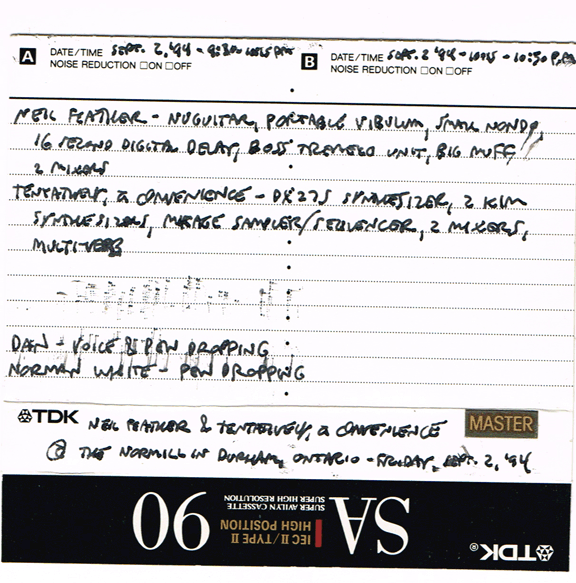 A DATE/TIME SEPT. 2, '94 - 9:30-10:15 PM B DATE/TIME SEPT. 2 '94 - 10:15 - 10:30 P.M.
NOISE REDUCTION □ON □OFF NOISE REDUCTION □ON □OFF
NEIL FEATHER - NUGUITAR, PORTABLE VIBULUM, SMALL NONDO,
16 SECOND DIGITAL DELAY, BOSS TREMELO UNIT, BIG MUFF,
2 MIXERS
TENTATIVELY, A CONVENIENCE - DX27S SYNTHESIZER, 2 KIM
SYNTHESIZERS, MIRAGE SAMPLER/SEQUENCER, 2 MIXERS,
MULTI-VERB
DAN - VOICE & PEN DROPPING
NORMAN WHITE - PEN DROPPING
TDK NEIL FEATHER & TENTATIVELY, A CONVENIENCE MASTER
@ THE NORMILL IN DURHAM, ONTARIO - FRIDAY, SEPT. 2, '94
TDK® SA IEC II/TYPE II HIGH POSITION SUPER AVILYN CASSETTE SUPER HIGH RESOLUTION 90